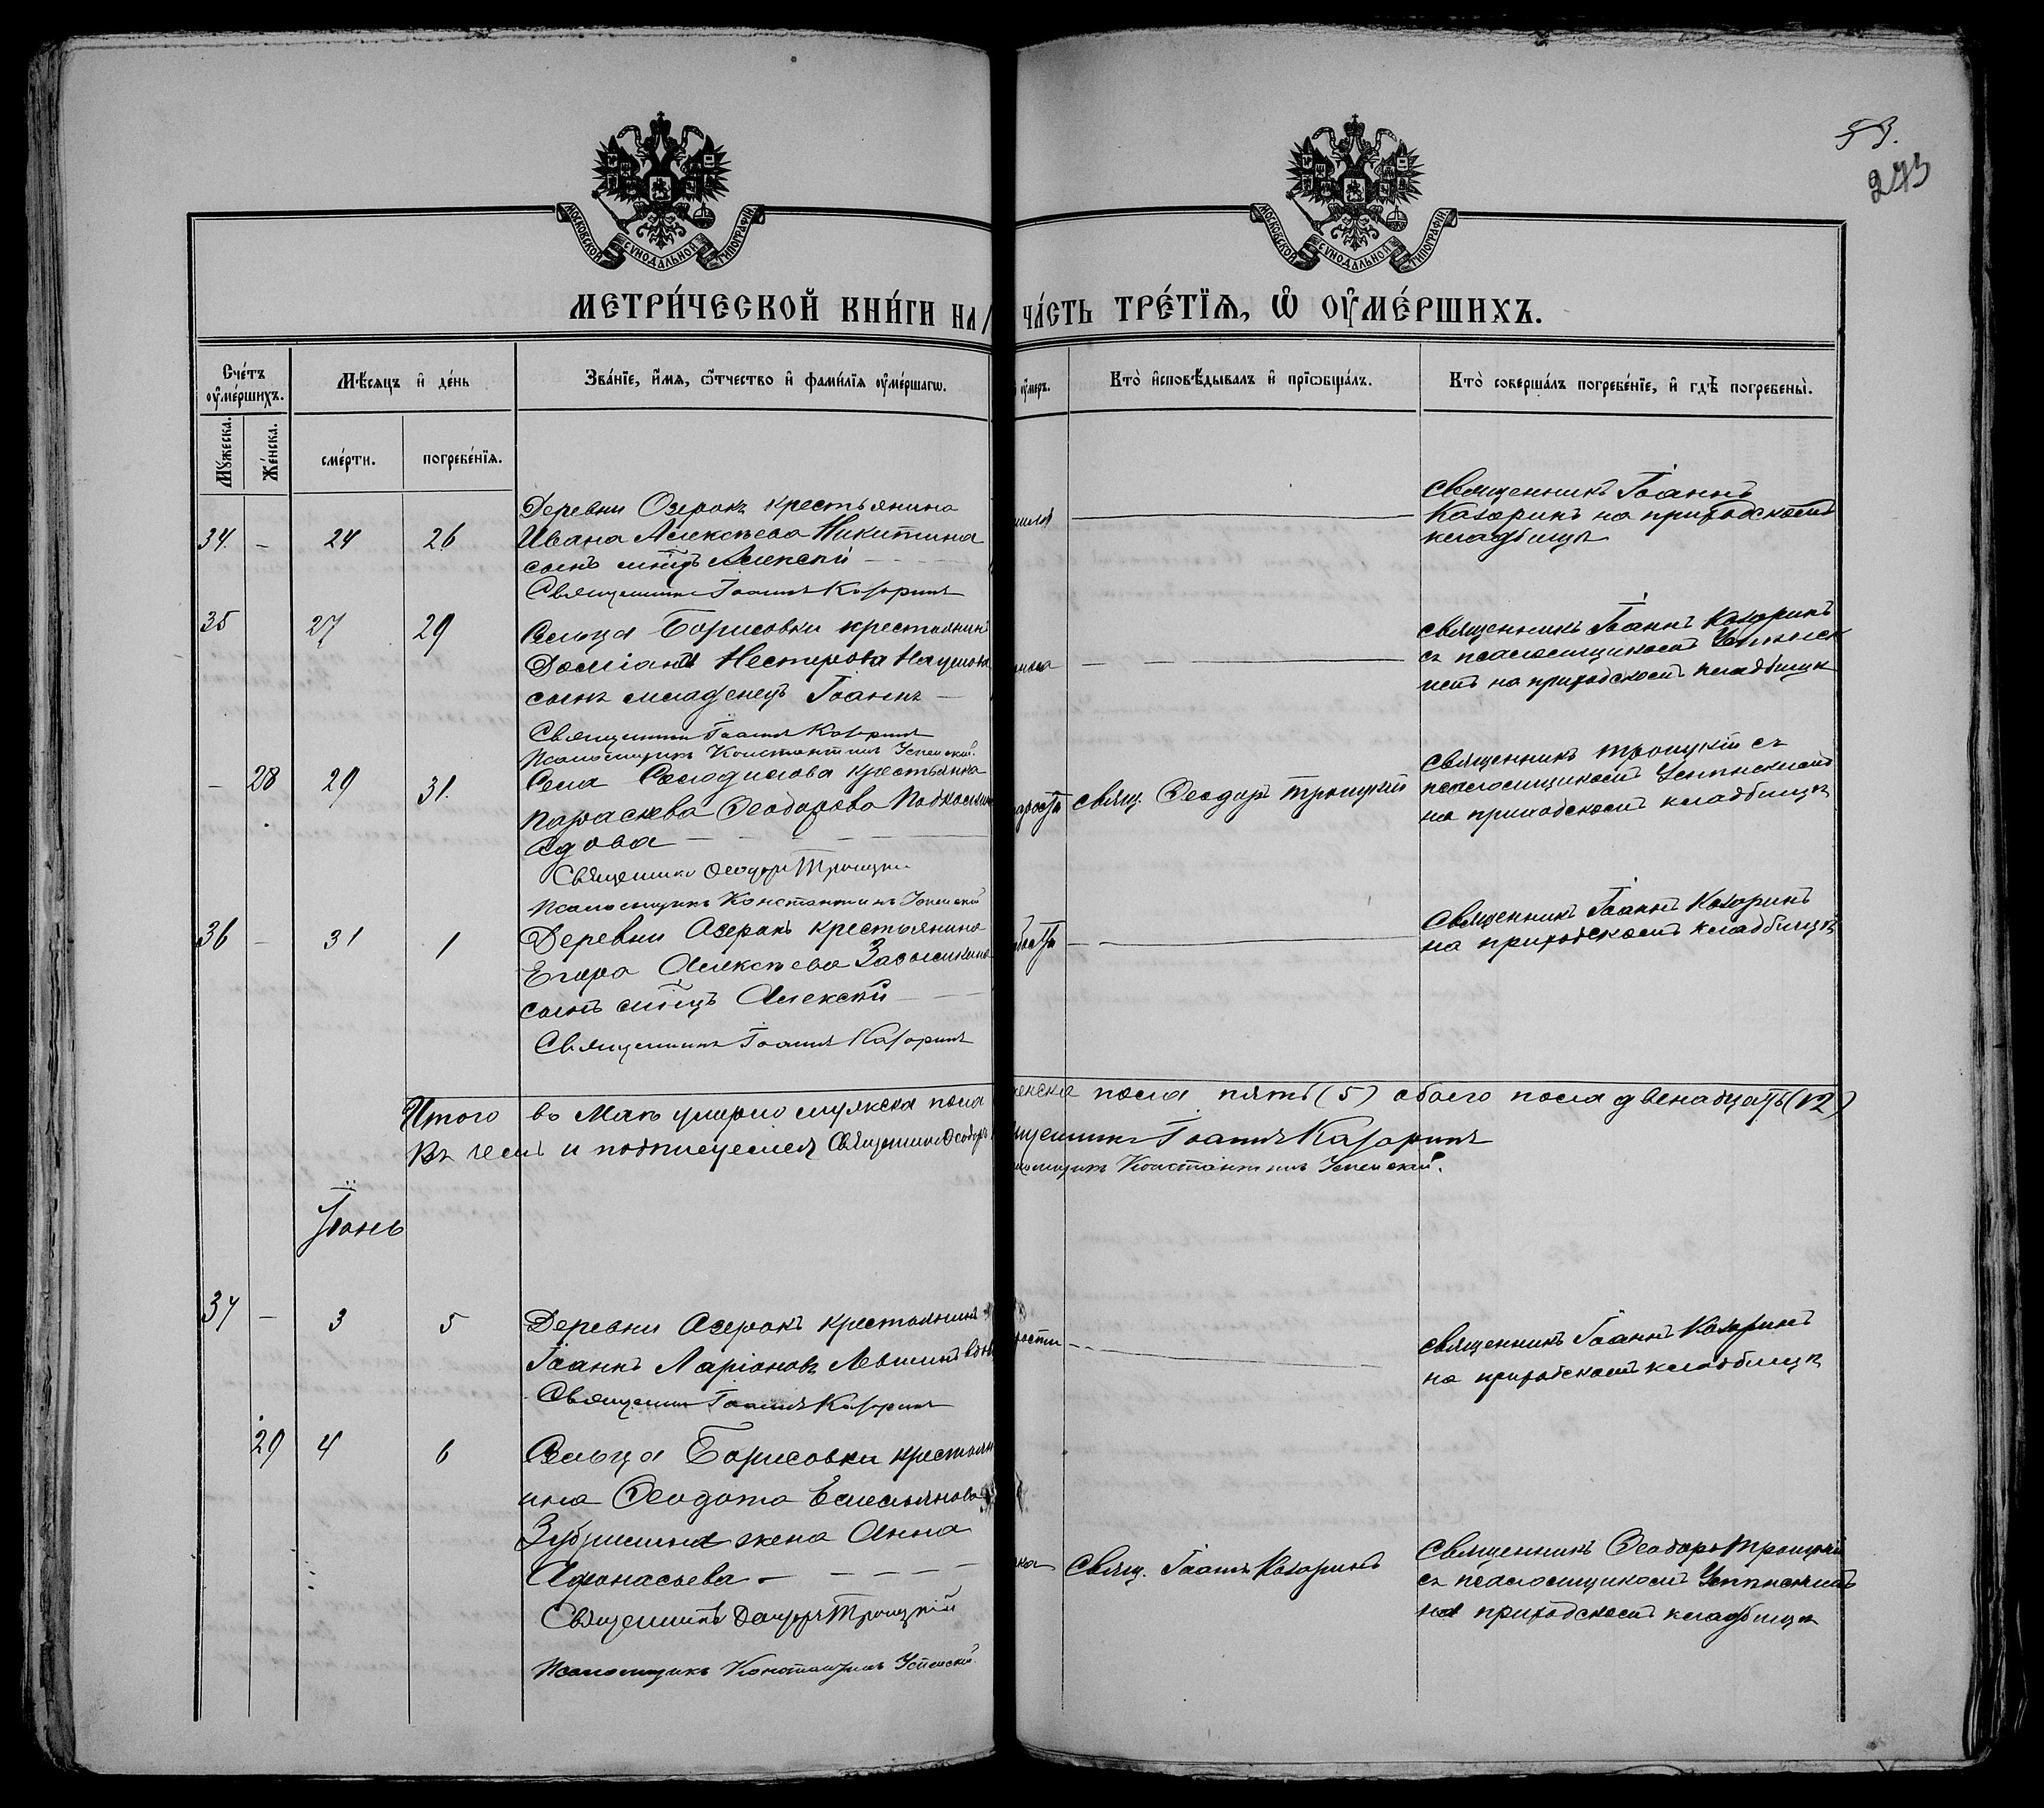 53.
273
МОСКОВСКОЙ СѴНОДАЛЬНОЙ ТИПОГРАФІИ
МОСКОВСКОЙ СѴНОДАЛЬНОЙ ТИПОГРАФІИ
МЕТРИ́ЧЕСКОЙ КНИ́ГИ НА
ЧА́СТЬ ТРЕ́ТЇѦ, Ѡ҆ ОУ҆МЕ́РШИХЪ.
Сче́тъ оу҆ме́ршихъ.
Мѣ́сяцъ и҆ де́нь
Зва́нїе, и҆́мя, ѻ҆́тчество и҆ фами́лїя оу҆ме́ршагѡ.
оу҆́меръ.
Кто̀ и҆сповѣ́дывалъ и҆ прїѡбща́лъ.
Кто̀ соверша́лъ погребе́нїе, и҆ гдѣ̀ погребены̀.
Мꙋ́жеска.
Же́нска.
сме́рти.
погребе́нїя.
34. - 24 26
Деревни Озерокъ крестьянина
Ивана Алексѣева Никитина
сынъ млнцъ Алексѣй
Священникъ Іоаннъ Казаринъ
Священникъ Іоаннъ
Казаринъ на приходскомъ
кладбищѣ
35 27 29
Сельца Борисовки крестьянина
Даміана Нестерова Наумова
сынъ младенецъ Іоаннъ
Священникъ Іоаннъ Казаринъ
Псаломщикъ Константинъ Успенскій.
священникъ Іоаннъ Казаринъ
съ псаломщикомъ Успенск
имъ на приходскомъ кладбищѣ
- 28 29 31.
Села Солодилова крестьянка
Параскева Ѳеодорова
вдова
Священникъ Ѳеодоръ Троицкій
Псаломщикъ Константинъ Успенскій
свящ. Ѳеодоръ Троицкій
священникъ Троицкій съ
псаломщикомъ Успенскимъ
на приходскомъ кладбищѣ
36 - 31 1
Деревни Озерокъ крестьянина
Егора Алексѣева
сынъ млнцъ Алексѣй
Священникъ Іоаннъ Казаринъ
Священникъ Іоаннъ Казаринъ
на приходскомъ кладбищѣ
Итого въ Маѣ умерло мужска пола
женска пола пять (5) обоего пола двенадцать (12)
Въ чемъ и подписуемся Священникъ Ѳеодоръ
Священникъ Іоаннъ Казаринъ
Псаломщикъ Константинъ Успенскій.
Іюнь
37 - 3 5
Деревни Озерокъ крестьянинъ
Іоаннъ Ларіоновъ Левшинъ вдов
Священникъ Іоаннъ Казаринъ
священникъ Іоаннъ Казаринъ
на приходскомъ кладбищѣ
29 4 6
Сельца Борисовки крестьян
ина Ѳеодота Емельянова
жена Анна
Аѳонасьева
Священникъ Ѳеодоръ Троицкій
Псаломщикъ Константинъ Успенскій.
Свящ. Іоаннъ Казаринъ
Священникъ Ѳеодоръ Троицкій
съ псаломщикомъ Успенскимъ
на приходскомъ кладбищѣ